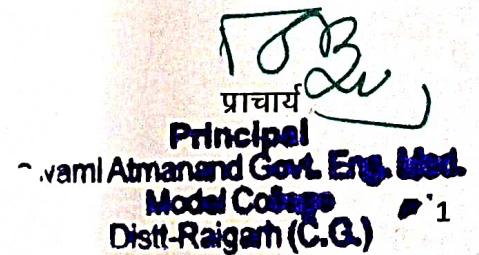 प्राचार्य
Principal
Swami Atmanand Govt. Eng. Med.
Model College
Distt-Raigarh (C.G.)
1